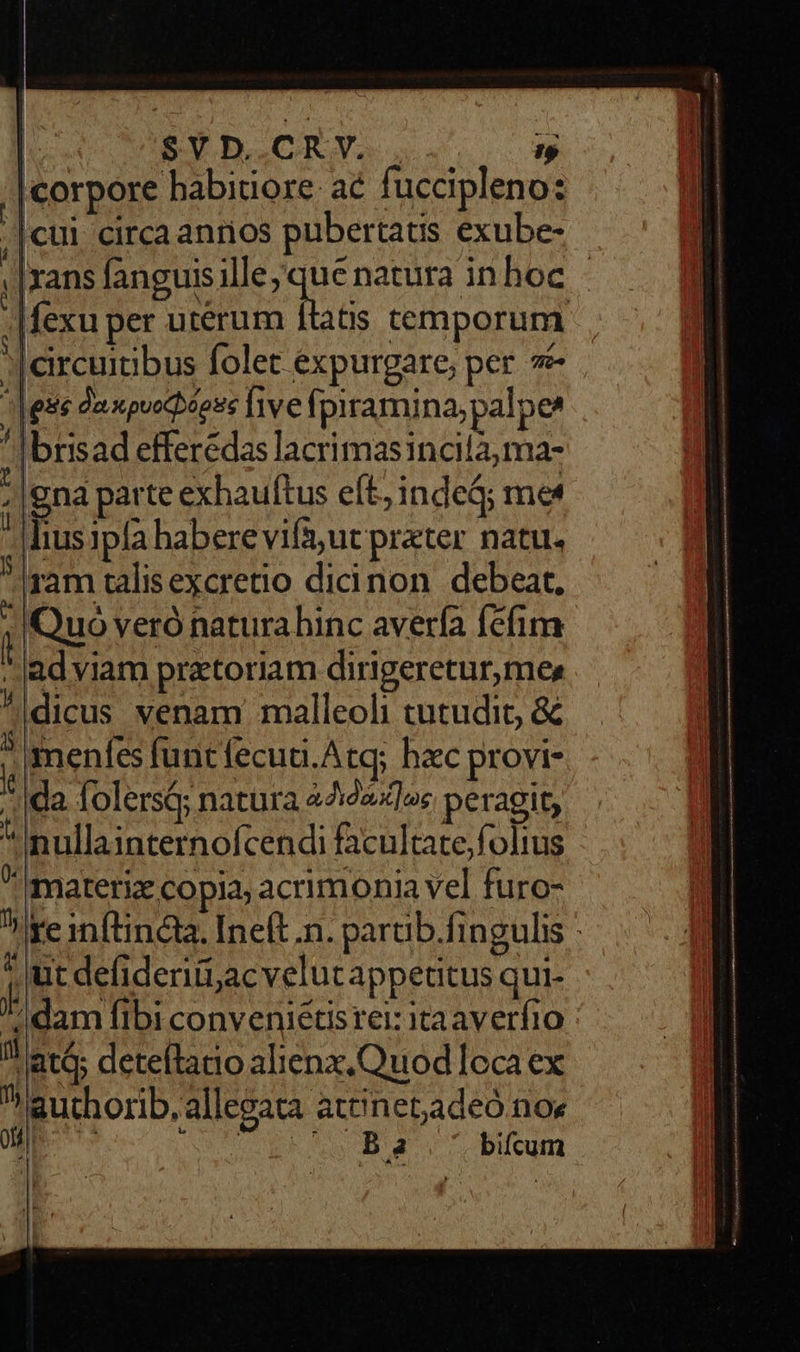 SVD. CRV. 19
corpore habitiore ac ſuccipleno:
cui circa annos pubertatis exube-
rans ſanguis ille, quē natura in hoc
ſexu per uterum ſtatis temporum
circuitibus ſolet expurgare, per πό-
ρȣς δακρυοφόρȣς ſive ſpiramina, palpe-
bris ad efferēdas lacrimas inciſa, ma-
gna parte exhauſtus eſt, indeq́; me-
lius ipſa habere viſa, ut præter natu-
ram talis excretio dici non debeat.
Quò verò natura hinc averſa ſēſim
ad viam prætoriam dirigeretur, me-
dicus venam malleoli tutudit, &
menſes ſunt ſecuti. Atq; hæc provi-
da ſolersq́; natura ἀδιδάκτως peragit,
nulla internoſcendi facultate, ſolius
materiæ copia, acrimonia vel furo-
re inſtincta. Ineſt .n. partib. ſingulis
ut deſideriū, ac velut appetitus qui-
dam ſibi conveniētis rei: ita averſio
atq́; deteſtatio alienæ. Quod loca ex
authorib. allegata attinet, adeò no-
B 2 biſcum